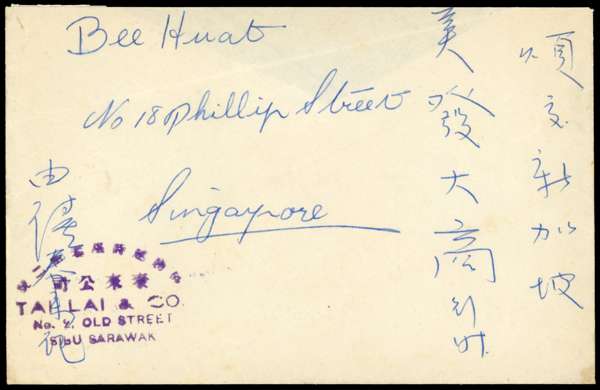 Bee Huat
No 18 Phillip Street
Singapore
交新加坡
美發大商
由
司公來泰
TAI LAI & CO.
No. 2, OLD STREET
SIBU SARAWAK